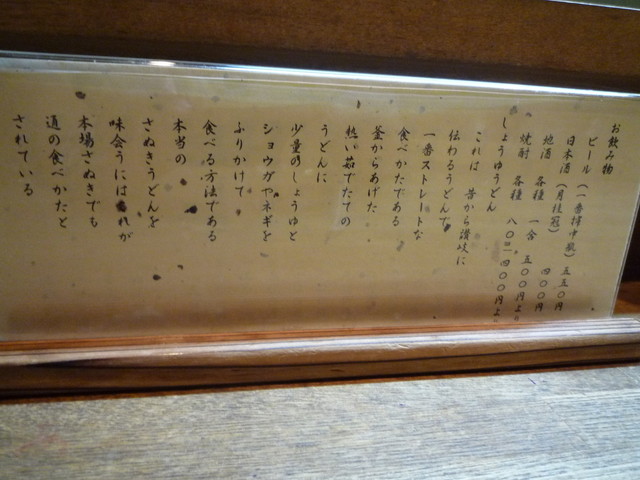 お飲み物
ビール(一番搾中瓶)五五〇円
日本酒(月桂冠) 四〇〇円
地酒 各種 一合 五〇〇円よ
焼酎 各種 八〇 四〇〇円よ
しょうゆうどん
これは 昔から讃岐に
伝わるうどんで
一番ストレートな
食べかたである
釜からあげた
熱い茹でたての
うどんに
少量のしょうゆと
ショウガやネギを
ふりかけて
食べる方法である
本当の
さぬきうどんを
味会うにはこれが
本場さぬきでも
通の食べかたと
されている